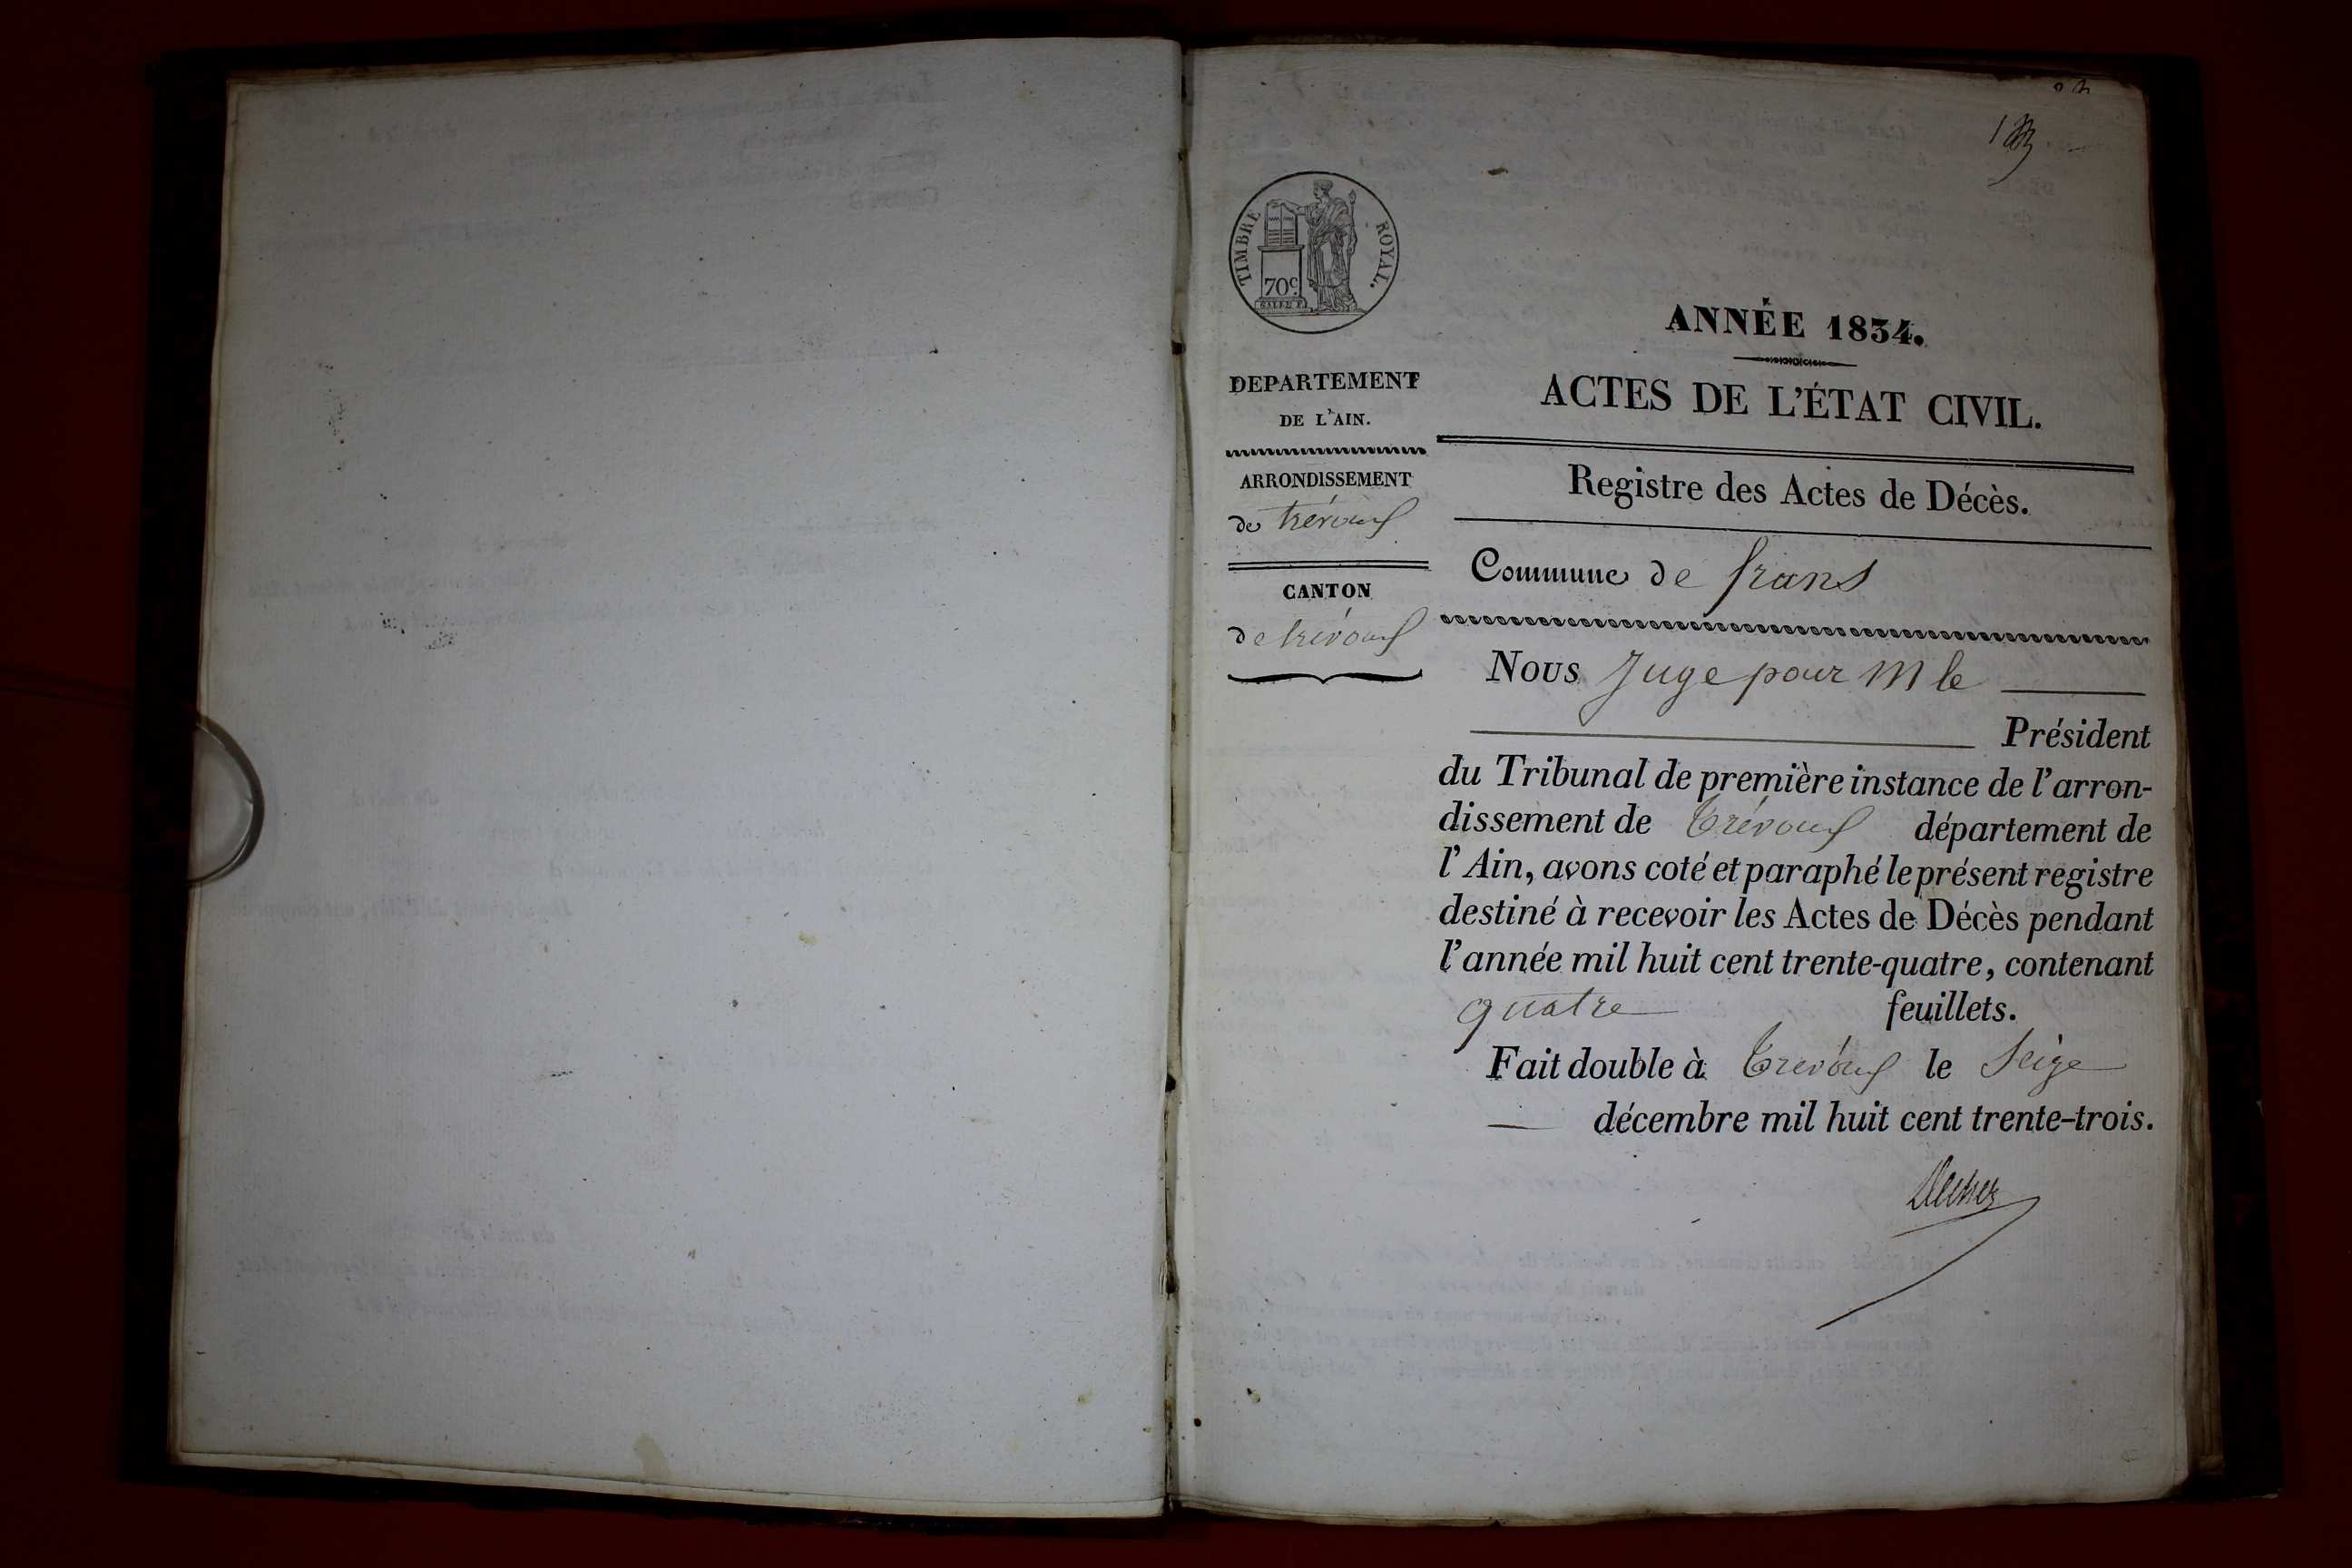 TIMBRE ROYAL.
70c.
DEPARTEMENT
DE L'AIN.
ARRONDISSEMENT
de trévoux
CANTON
de trévoux
ANNÉE 1834.
ACTES DE L'ÉTAT CIVIL.
Registre des Actes de Décès.
Commune de frans
Nous Juge pour M le
Président
du Tribunal de première instance de l'arron-
dissement de Trévoux département de
l'Ain, avons coté et paraphé le présent registre
destiné à recevoir les Actes de Décès pendant
l'année mil huit cent trente-quatre, contenant
quatre feuillets.
Fait double à Trévoux le Seize
décembre mil huit cent trente-trois.